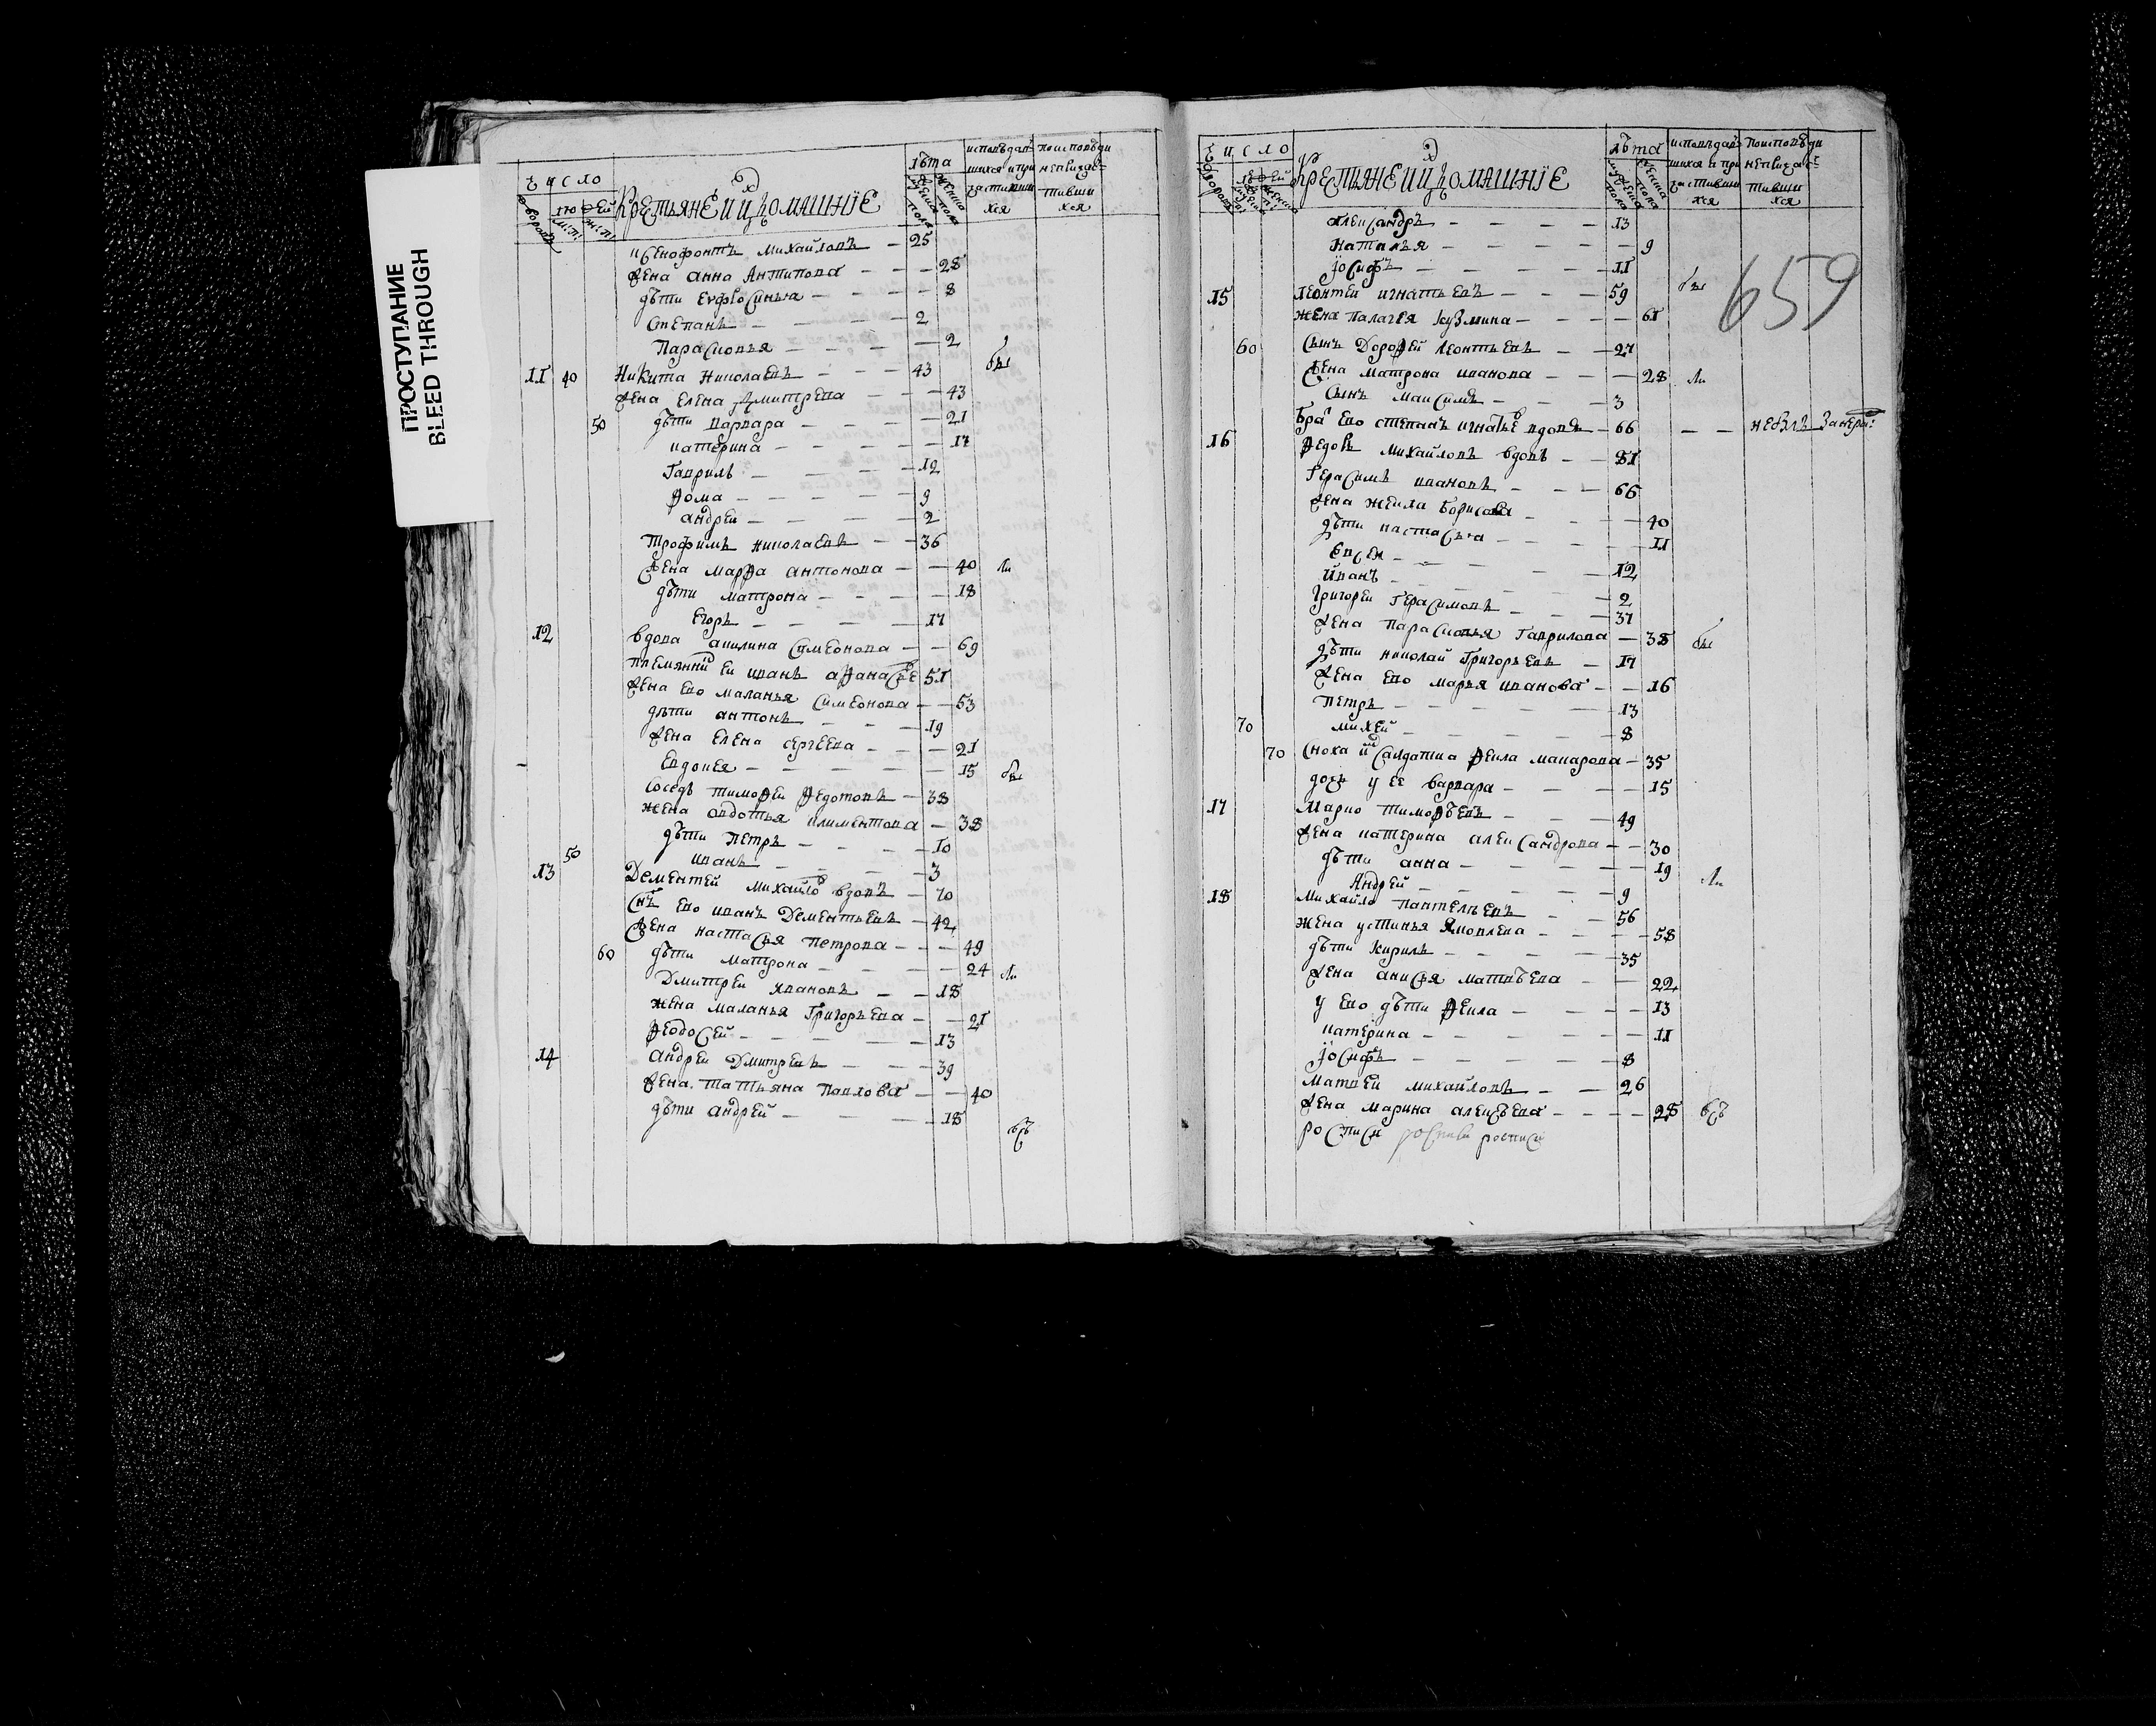 ПРОСТУПАНИЕ
BLEED THROUGH
Число
Крестьяне и их домашнїе
лѣта
мужеска пола
женска пола
исповѣдав
шихся и при
частивши
хся
по исповѣди
непричас
тивши
хся
ксенофонтъ михайловъ 25
жена анна Антипова 28
дѣти еуфросинья 8
степанъ 2
Парасковья 2
11 40 Никита Николаевъ 43 бы
жена елена дмитрева 43
50 дѣти варвара 21
катерина 17
гаврилъ 12
ѳома 9
андреи 2
трофимъ николаевъ 36
жена марѳа антонова 40 ли
дѣти матрона 18
егоръ 17
12 вдова акилина симеонова 69
племянни ей иванъ аѳанасье 51
жена ево маланья симеонова 53
дѣти антонъ 19
жена елена сергѣева 21
евдокея 15 бы
соседъ тимоѳеи ѳедотовъ 38
жена авдотья климентова 38
дѣти петръ 10
50 иванъ 3
13 дементей михайло вдовъ 70
снъ ево иванъ дементьевъ 42
жена настасья петрова 49
60 дѣти матрона 24 ли
дмитреи ивановъ 18
жена маланья григорьева 21
ѳеодосей 13
14 андреи дмитревъ 39
жена татьяна павлова 40
дѣти андрей 18
Число
Крестьяне и их домашнїе
лѣта
мужеска пола
женска пола
исповѣдав
шихся и при
частивши
хся
по исповѣди
непричас
тивши
хся
659
александръ 13
наталья 9
їосифъ 11
15 леонтеи игнатьевъ 59 бы
жена палагея кузмина 61
60 сынъ дороѳей леонтьевъ 27
жена матрона иванова 28 ли
сынъ максимъ 3
бра ево степанъ игнатье вдовъ 66 небылъ
16 ѳедоръ михайловъ вдовъ 81
герасимъ ивановъ 66
жена ѳекла борисова 40
дѣти настасья 11
12
иванъ 2
григореи герасимовъ 37
жена парасковья гаврилова 38 бы
дѣти николай григорьевъ 17
жена ево марья иванова 16
петръ 13
70 михей 8
70 сноха их салдатка ѳекла макарова 35
дочь у ее варвара 15
17 марко тимоѳѣевъ 49
жена катерина александрова 30
дѣти анна 19
андрей 9 ли
18 михайло пантелѣевъ 56
жена устинья яковлева 58
дѣти кирилъ 35
жена анисья матвѣева 22
у ево дѣти ѳекла 13
катерина 11
їосифъ 8
матвей михайловъ 26
жена марина алексѣева 28
росписи росписи росписи